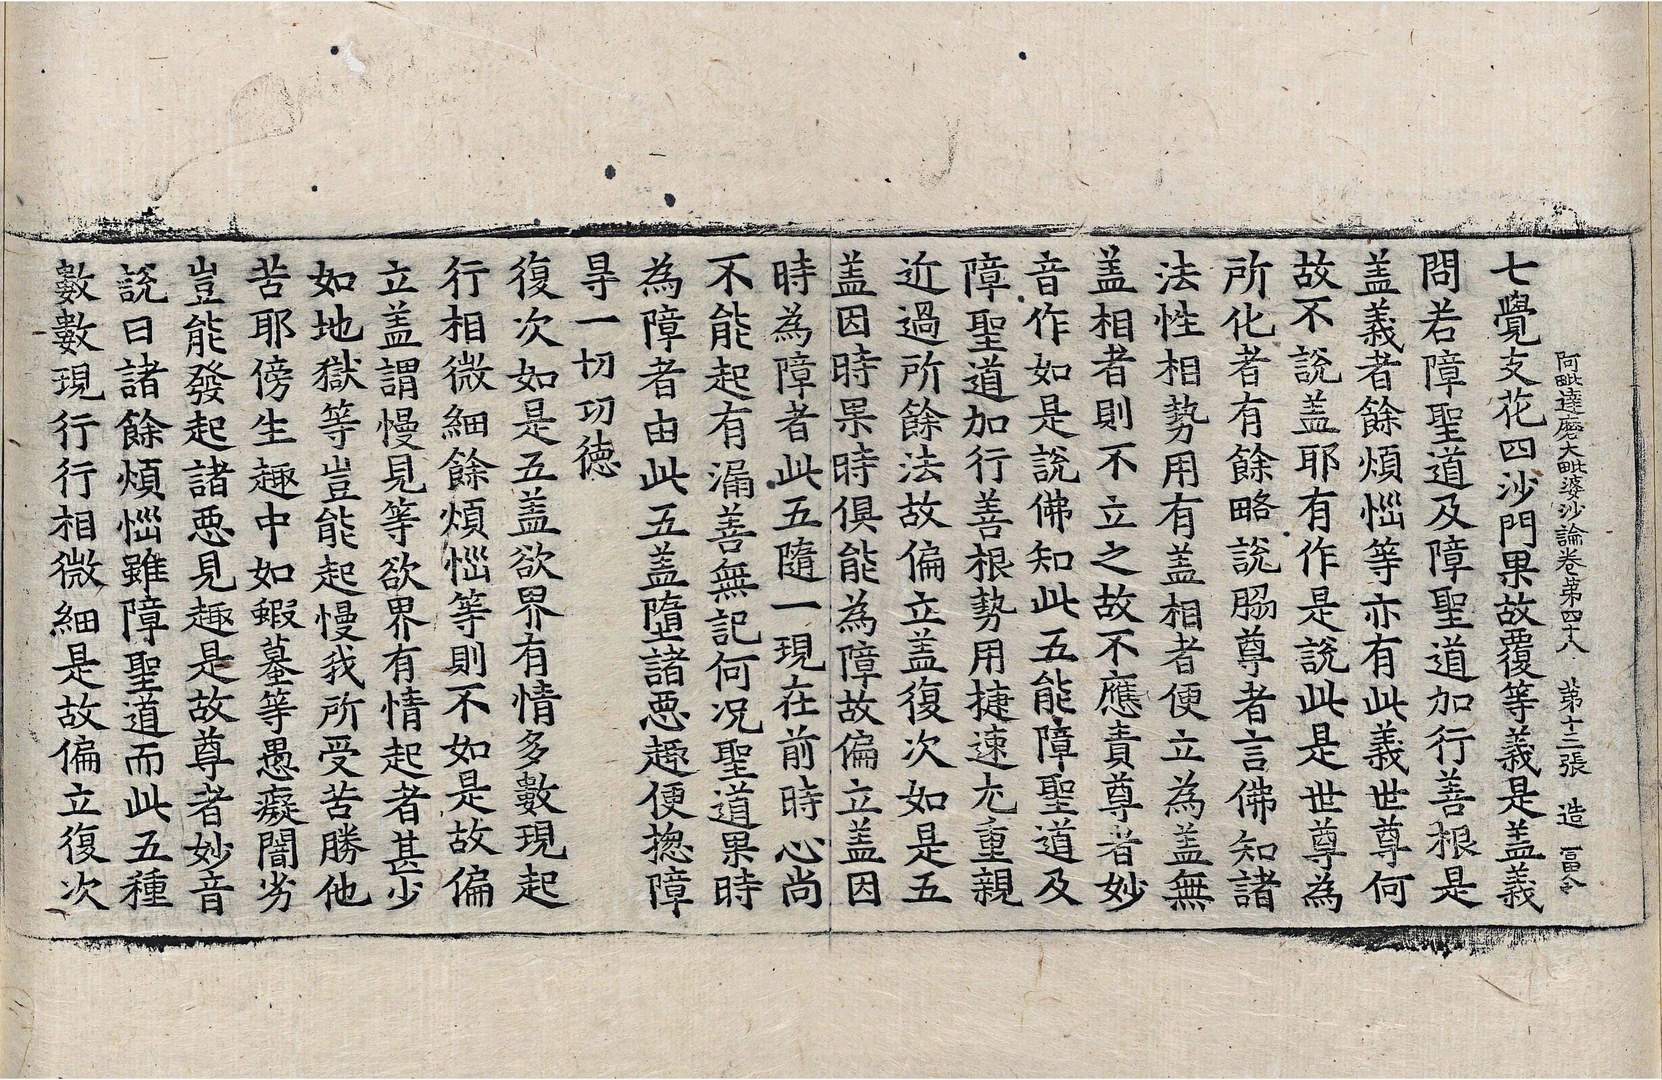 阿毗達磨大毗婆沙論卷苐四十八 苐十三張 造 冨仒
七覺支花四沙門果故覆等義是盖義
問若障聖道及障聖道加行善根是
盖義者餘煩惱等亦有此義世尊何
故不說盖耶有作是說此是世尊為
所化者有餘略說脇尊者言佛知諸
法性相勢用有盖相者便立為盖無
盖相者則不立之故不應責尊者妙
音作如是說佛知此五能障聖道及
障聖道加行善根勢用捷速尤重親
近過所餘法故偏立盖復次如是五
盖因時果時俱能為障故偏立盖因
時為障者此五隨一現在前時心尚
不能起有漏善無記何况聖道果時
為障者由此五盖墮諸惡趣便揔障
㝵一切功德
復次如是五盖欲界有情多數現起
行相微細餘煩惱等則不如是故偏
立盖謂慢見等欲界有情起者甚少
如地獄等豈能起慢我所受苦勝他
苦耶傍生趣中如蝦蟇等愚癡闇劣
豈能發起諸惡見趣是故尊者妙音
說曰諸餘煩惱雖障聖道而此五種
數數現行行相微細是故偏立復次